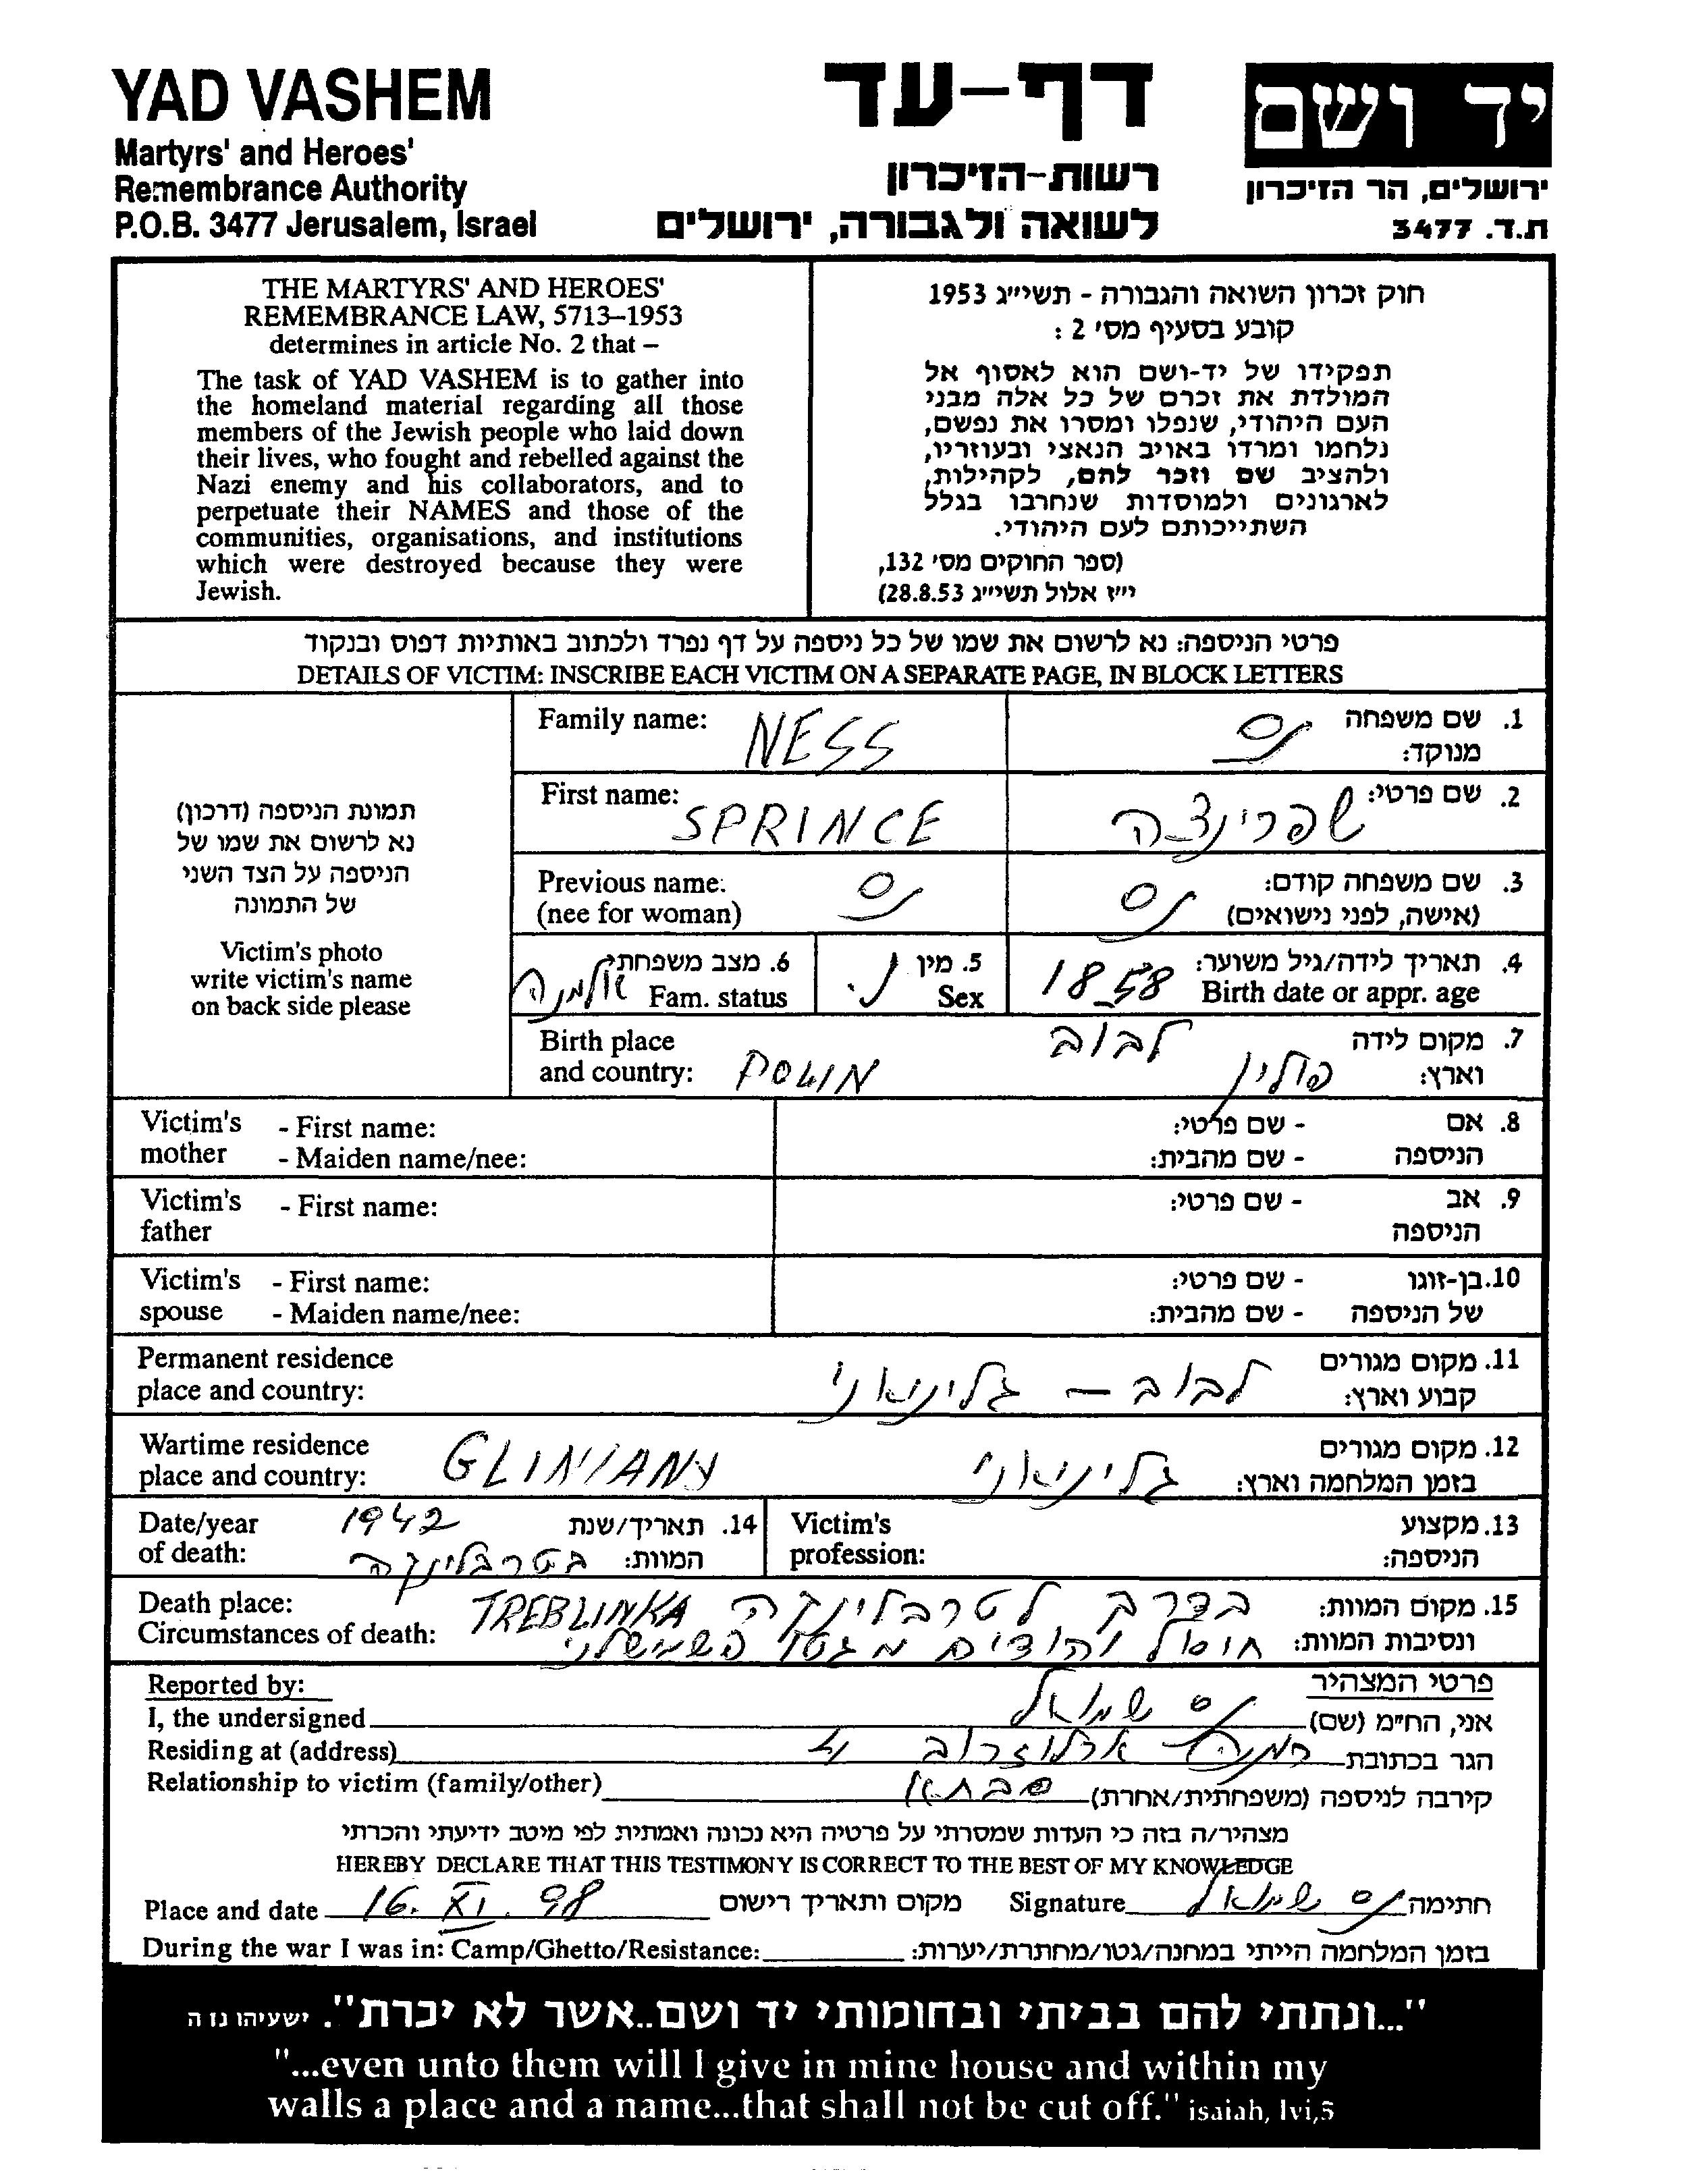 YAD VASHEM
Martyrs' and Heroes'
Remembrance Authority
P.O.B. 3477 Jerusalem, Israel
דף-עד
רשות-הזיכרון
לשואה ולגבורה, ירושלים
יד ושם
ירושלים, הר הזיכרון
ת.ד. 3477
THE MARTYRS' AND HEROES'
REMEMBRANCE LAW, 5713–1953
determines in article No. 2 that –
The task of YAD VASHEM is to gather into
the homeland material regarding all those
members of the Jewish people who laid down
their lives, who fought and rebelled against the
Nazi enemy and his collaborators, and to
perpetuate their NAMES and those of the
communities, organisations, and institutions
which were destroyed because they were
Jewish.
חוק זכרון השואה והגבורה - תשי״ג 1953
קובע בסעיף מס׳ 2 :
תפקידו של יד-ושם הוא לאסוף אל
המולדת את זכרם של כל אלה מבני
העם היהודי, שנפלו ומסרו את נפשם,
נלחמו ומרדו באויב הנאצי ובעוזריו,
ולהציב שם וזכר להם, לקהילות,
לארגונים ולמוסדות שנחרבו בגלל
השתייכותם לעם היהודי.
(ספר החוקים מס׳ 132,
י״ז אלול תשי״ג 28.8.53)
פרטי הניספה: נא לרשום את שמו של כל ניספה על דף נפרד ולכתוב באותיות דפוס ובנקוד
DETAILS OF VICTIM: INSCRIBE EACH VICTIM ON A SEPARATE PAGE, IN BLOCK LETTERS
תמונת הניספה (דרכון)
נא לרשום את שמו של
הניספה על הצד השני
של התמונה
Victim's photo
write victim's name
on back side please
Family name: NESS נס 1. שם משפחה
מנוקד:
First name: SPRINCE שפרינצה 2. שם פרטי:
Previous name: נס נס 3. שם משפחה קודם:
(nee for woman) (אישה, לפני נישואים)
אלמנה 6. מצב משפחתי נ. 5. מין 1858 4. תאריך לידה/גיל משוער:
Fam. status Sex Birth date or appr. age
Birth place לבוב 7. מקום לידה
and country: POLIN פולין וארץ:
Victim's - First name: - שם פרטי: 8. אם
mother - Maiden name/nee: - שם מהבית: הניספה
Victim's - First name: - שם פרטי: 9. אב
father הניספה
Victim's - First name: - שם פרטי: 10. בן-זוגו
spouse - Maiden name/nee: - שם מהבית: של הניספה
Permanent residence 11. מקום מגורים
place and country: לבוב – גליניאני קבוע וארץ:
Wartime residence 12. מקום מגורים
place and country: GLINIANY גליניאני בזמן המלחמה וארץ:
Date/year 1942 14. תאריך/שנת Victim's 13. מקצוע
of death: בטרבלינקה המוות: profession: הניספה:
Death place: TREBLINKA בדרך לטרבלינקה 15. מקום המוות:
Circumstances of death: ונסיבות המוות:
Reported by: פרטי המצהיר
I, the undersigned נס שמואל אני, הח״מ (שם)
Residing at (address) ארלוזרוב 4 הגר בכתובת
Relationship to victim (family/other) סבתא קירבה לניספה (משפחתית/אחרת)
מצהיר/ה בזה כי העדות שמסרתי על פרטיה היא נכונה ואמתית לפי מיטב ידיעתי והכרתי
HEREBY DECLARE THAT THIS TESTIMONY IS CORRECT TO THE BEST OF MY KNOWLEDGE
Place and date 16. XI. 98 מקום ותאריך רישום Signature נס שמואל חתימה
During the war I was in: Camp/Ghetto/Resistance: בזמן המלחמה הייתי במחנה/גטו/מחתרת/יערות:
"...ונתתי להם בביתי ובחומותי יד ושם..אשר לא יכרת". ישעיהו נו ה
"...even unto them will I give in mine house and within my
walls a place and a name...that shall not be cut off." isaiah, lvi,5